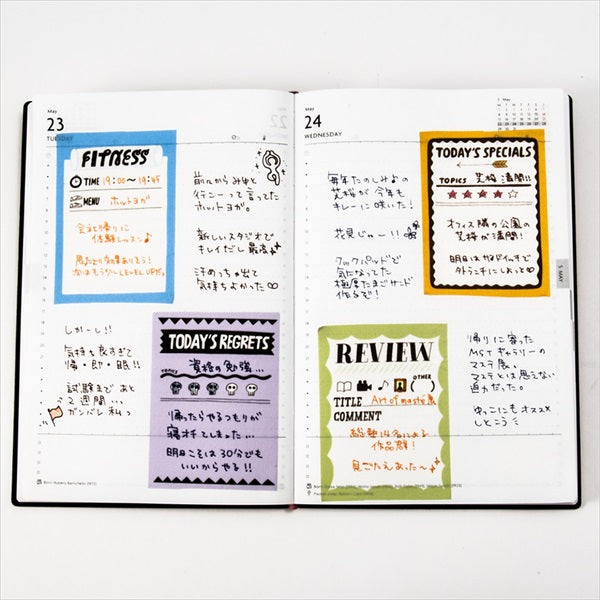 May
23
TUESDAY
FITNESS
TIME 19:00〜19:45
MENU ホットヨガ
会社帰りに
体験レッスン♪
前からみゆと
行こーって言ってた
ホットヨガ。
新しいスタジオで
キレイだし最高
汗めっちゃ出て
気持ちよかった♡
しかーし!!
気持ち良すぎて
帰・即・眠!!
試験まであと
2週間...
ガンバレ私っ
TODAY'S REGRETS
TOPICS 資格の勉強...
帰ったらやるつもりが
寝オチしてしまった...
明日こそは30分でも
いいからやる!!
May
24
WEDNESDAY
毎年たのしみの
芝桜が今年も
キレーに咲いた!
花見じゃー!!
クックパッドで
気になってた
極厚たまごサンド
作るぞ!
5 May
TODAY'S SPECIALS
TOPICS 芝桜 満開!!
オフィス隣の公園の
芝桜が満開!
明日はサンドイッチで
外ランチにしよっと♡
5 MAY
REVIEW
OTHER
TITLE Art of masté展
COMMENT
総勢14名による
作品群!
見ごたえあった〜
帰りに寄った
MSTギャラリーの
マステ展。
マステとは思えない
迫力だった。
ゆっこにもオススメ
しとこう